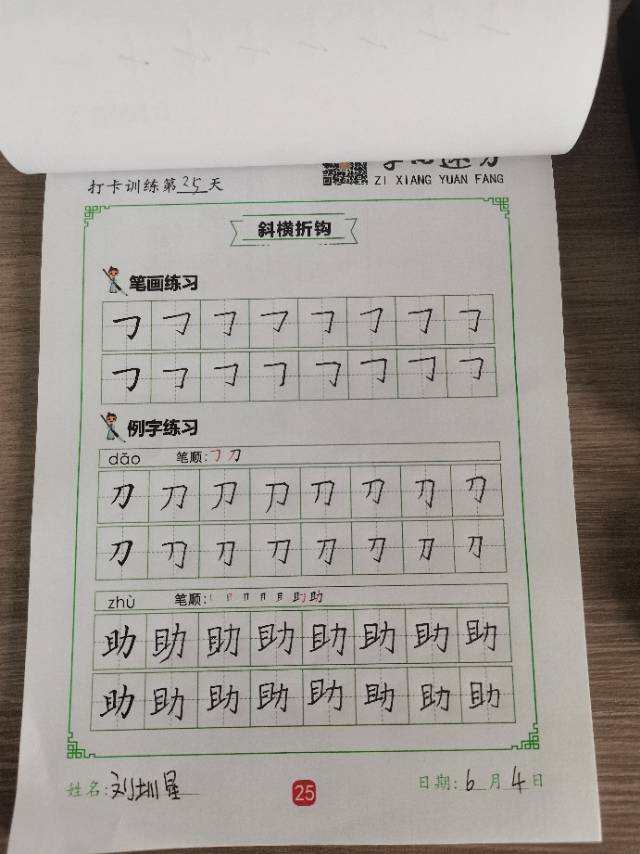 打卡训练第25天
ZI XIANG YUAN FANG
斜横折钩
笔画练习
㇆ ㇆ ㇆ ㇆ ㇆ ㇆ ㇆ ㇆
㇆ ㇆ ㇆ ㇆ ㇆ ㇆ ㇆ ㇆
例字练习
dāo 笔顺:㇆刀
刀 刀 刀 刀 刀 刀 刀 刀
刀 刀 刀 刀 刀 刀 刀 刀
zhù 笔顺: 助
助 助 助 助 助 助 助 助
助 助 助 助 助 助 助 助
姓名:刘圳星 25 日期:6月4日